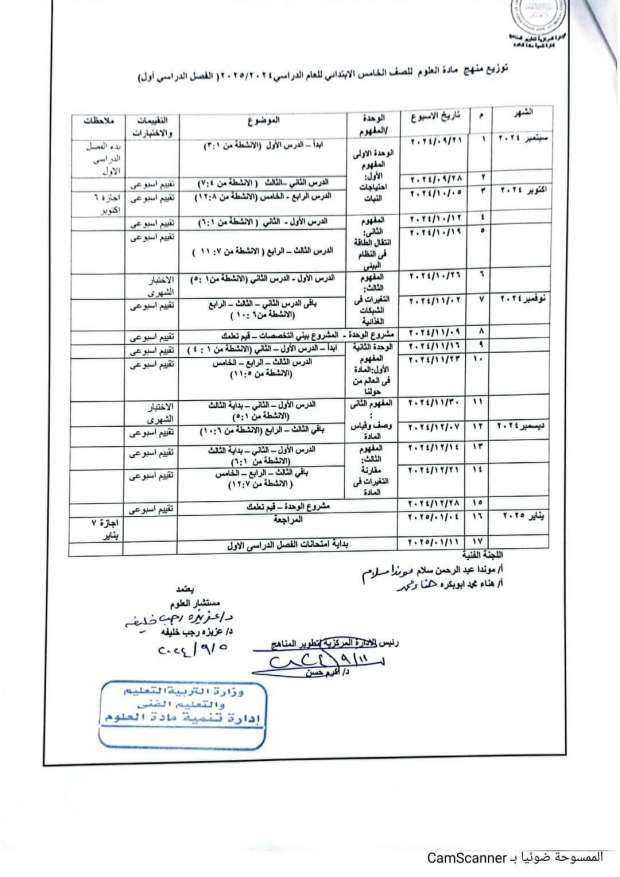 الإدارة المركزية لتطوير المناهج
إدارة تنمية مادة العلوم
توزيع منهج مادة العلوم للصف الخامس الابتدائي للعام الدراسي ٢٠٢٥/٢٠٢٤ (الفصل الدراسي أول)
الشهر م تاريخ الاسبوع الوحدة /المفهوم الموضوع التقييمات والاختبارات ملاحظات
سبتمبر ٢٠٢٤ ١ ٢٠٢٤/٠٩/٢١ الوحدة الاولى المفهوم الأول: احتياجات النبات ابدأ – الدرس الأول (الانشطة من ٣:١) بدء الفصل الدراسى الاول
٢ ٢٠٢٤/٠٩/٢٨ الدرس الثاني –الثالث (الأنشطة من ٧:٤) تقييم اسبوعى
اكتوبر ٢٠٢٤ ٣ ٢٠٢٤/١٠/٠٥ الدرس الرابع - الخامس (الانشطة من ١٢:٨) تقييم اسبوعى اجازة ٦ اكتوبر
٤ ٢٠٢٤/١٠/١٢ المفهوم الثانى: انتقال الطاقة فى النظام البيئى الدرس الأول - الثاني (الانشطة من ٦:١) تقييم اسبوعى
٥ ٢٠٢٤/١٠/١٩ الدرس الثالث – الرابع (الانشطة من ٧: ١١) تقييم اسبوعى
٦ ٢٠٢٤/١٠/٢٦ المفهوم الثالث: التغيرات فى الشبكات الغذائية الدرس الأول - الدرس الثاني (الانشطة من١ :٥) الاختبار الشهرى
نوفمبر ٢٠٢٤ ٧ ٢٠٢٤/١١/٠٢ باقى الدرس الثاني – الثالث – الرابع (الانشطة من٦ :١٠) تقييم اسبوعى
٨ ٢٠٢٤/١١/٠٩ مشروع الوحدة - المشروع بيني التخصصات – قيم تعلمك تقييم اسبوعى
٩ ٢٠٢٤/١١/١٦ الوحدة الثانية المفهوم الأول:المادة فى العالم من حولنا ابدأ – الدرس الأول – الثاني (الانشطة من ١ : ٤) تقييم اسبوعى
١٠ ٢٠٢٤/١١/٢٣ الدرس الثالث – الرابع – الخامس (الانشطة من ١١:٥) تقييم اسبوعى
١١ ٢٠٢٤/١١/٣٠ المفهوم الثانى : وصف وقياس المادة الدرس الأول – الثاني – بداية الثالث (الانشطة من ٥:١) الاختبار الشهرى
ديسمبر ٢٠٢٤ ١٢ ٢٠٢٤/١٢/٠٧ باقي الثالث – الرابع (الانشطة من ١٠:٦) تقييم اسبوعى
١٣ ٢٠٢٤/١٢/١٤ المفهوم الثالث: مقارنة التغيرات فى المادة الدرس الأول – الثاني – بداية الثالث (الانشطة من ٦:١) تقييم اسبوعى
١٤ ٢٠٢٤/١٢/٢١ باقي الثالث – الرابع – الخامس (الانشطة من ١٢:٧) تقييم اسبوعى
١٥ ٢٠٢٤/١٢/٢٨ مشروع الوحدة – قيم تعلمك تقييم اسبوعى
يناير ٢٠٢٥ ١٦ ٢٠٢٥/٠١/٠٤ المراجعة اجازة ٧ يناير
١٧ ٢٠٢٥/٠١/١١ بداية امتحانات الفصل الدراسى الاول
اللجنة الفنية
أ/ موندا عبد الرحمن سلام موندا سلام
أ/ هناء محمد ابوبكره هناء محمد
يعتمد
مستشار العلوم
د/عزيزه رجب خليفه
د/ عزيزه رجب خليفه
٢٠٢٤/٩/٥
رئيس الإدارة المركزية لتطوير المناهج
٢٠٢٤/٩/١١
د/ أكرم حسن
وزارة التربية التعليم
والتعليم الفنى
إدارة تنمية مادة العلوم
الممسوحة ضوئيا بـ CamScanner